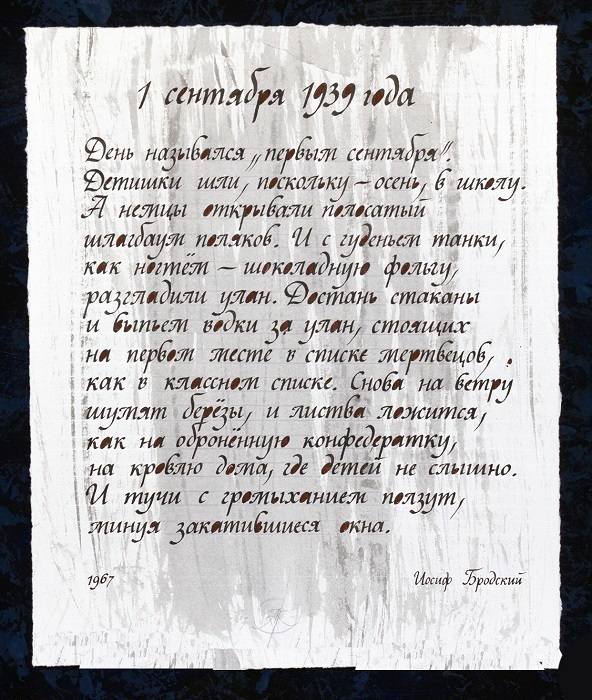 1 сентября 1939 года
День назывался „первым сентября".
Детишки шли, поскольку – осень, в школу.
А немцы открывали полосатый
шлагбаум поляков. И с гуденьем танки,
как ногтём – шоколадную фольгу,
разгладили улан. Достань стаканы
и выпьем водки за улан, стоящих
на первом месте в списке мертвецов,
как в классном списке. Снова на ветру
шумят берёзы, и листва ложится,
как на оброненную конфедератку,
на кровлю дома, где детей не слышно.
И тучи с громыханием ползут,
минуя закатившиеся окна.
1967 Иосиф Бродский